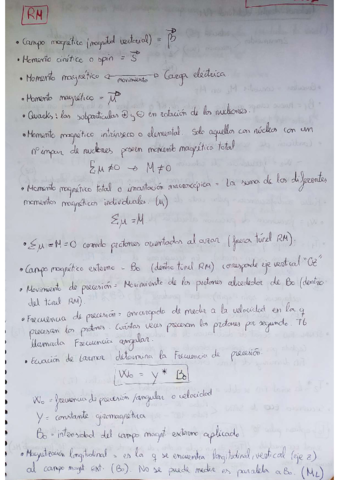 RM
• Campo magnético (magnitud vectorial) = B
• Momento cinético o spin = S
• Momento magnético movimiento Carga eléctrica
• Momento magnético = μ
• Quarks: las subpartículas ⊕ y ⊖ en rotación de los nucleones
• Momento magnético intrínseco o elemental Solo aquellos con núcleos con un
nº impar de nucleones poseen momento magnético total
Σμ ≠ 0 → M ≠ 0
• Momento magnético total o imantación macroscópica - La suma de los diferentes
momentos magnéticos individuales (μ)
Σμ = M
• Σμ = M = 0 cuando protones orientados al azar (fuera túnel RM).
• Campo magnético externo - B0 (dentro túnel RM) corresponde eje vertical "Oz"
• Movimiento de precesión - Movimiento de los protones alrededor de B0 (dentro
del túnel RM)
• Frecuencia de precesión: encargado de medir a la velocidad en la q
precesan los protones. Cuántas veces precesan los protones por segundo. Tb
llamada Frecuencia angular.
• Ecuación de Larmor determinan la Frecuencia de precesión
W0 = γ * B0
W0 = frecuencia de precesión/angular o velocidad
γ = constante giromagnética
B0 = intensidad del campo magnét externo aplicado
• Magnetización longitudinal - es la q se encuentra longitudinal, vertical (eje z)
al campo magnét ext. (B0) No se puede medir es paralela a B0 (ML)